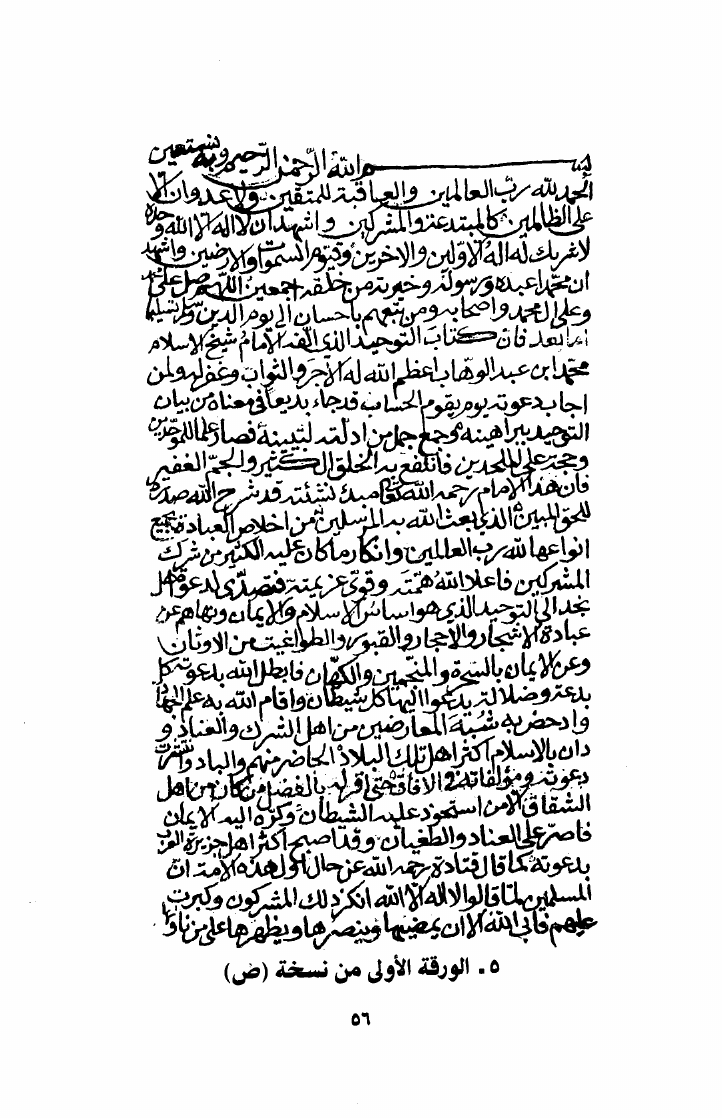 بسم الله الرحمن الرحيم وبه نستعين
الحمد لله رب العالمين والعاقبة للمتقين ولا عدوان الا
على الظالمين كالمبتدعة والمشركين واشهد ان لا اله الا الله وحده
لا شريك له اله الاولين والاخرين وقيوم السموات والارضين واشهد
ان محمدا عبده ورسوله وخيرته من خلقه اجمعين اللهم صل على محمد
وعلى ال محمد واصحابه ومن تبعهم باحسان الى يوم الدين وسلم تسليما
اما بعد فان كتاب التوحيد الذي الفه الامام شيخ الاسلام
محمد ابن عبد الوهاب اعظم الله له الاجر والثواب وغفر له ولمن
اجاب دعوته يوم يقوم الحساب قد جاء بديعا في معناه من بيان
التوحيد ببراهينه وجمع جمل من ادلته لتبيينه فصار علما للموحدين
وحجة على الملحدين فانتفع به الخلق الكثير والجم الغفير
فان هذا الامام رحمه الله في مبدء نشئته قد شرح الله صدره
للحق المبين الذي بعث الله به المرسلين من اخلاص العبادة بجميع
انواعها لله رب العالمين وانكار ما كان عليه الكثير من شرك
المشركين فاعلا الله همته وقوى عزيمته فتصدى لدعوة اهل
نجد الى التوحيد الذي هو اساس الاسلام والايمان ونهاهم عن
عبادة الاشجار والاحجار والقبور والطواغيت من الاوثان
وعن الايمان بالسحرة والمنجمين والكهان فابطل الله بدعوته كل
بدعة وضلالة يدعوا اليها كل شيطان واقام الله به علم الجهاد
وادحض به شبه المعارضين من اهل الشرك والعناد و
دان بالاسلام اكثر اهل تلك البلاد الحاضر منهم والباد وانتشرت
دعوته ومؤلفاته في الافاق حتى اقر له بالفضل من كان من اهل
الشقاق الا من استحوذ عليه الشيطان وكره اليه الايمان
فاصر على العناد والطغيان وقد اصبح اكثر اهل جزيرة العرب
بدعوته كما قال قتادة رحمه الله عن حال اول هذه الامة ان
المسلمين لما قالوا لا اله الا الله انكر ذلك المشركون وكبرت
عليهم فابى الله الا ان يمضيها وينصرها ويظهرها على من ناواها
٥ . الورقة الأولى من نسخة (ض)
٥٦